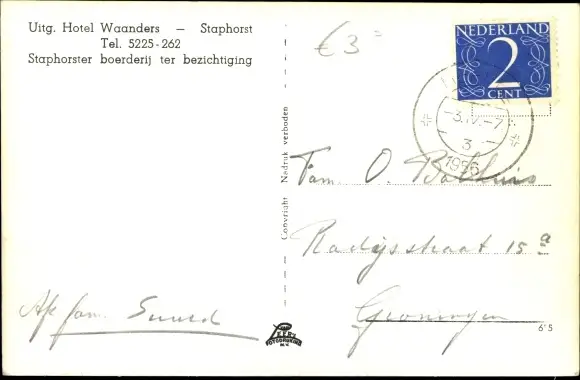 Uitg. Hotel Waanders — Staphorst
Tel. 5225-262
Staphorster boerderij ter bezichtiging
€ 3=
NEDERLAND
2
CENT
-3.IV.-7
3
1956
Copyright Nadruk verboden
Fam. O. Bolhuis
Radijsstraat 15a
Groningen
Afz fam.
FOTODRUKKERIJ
N.V.
6'5